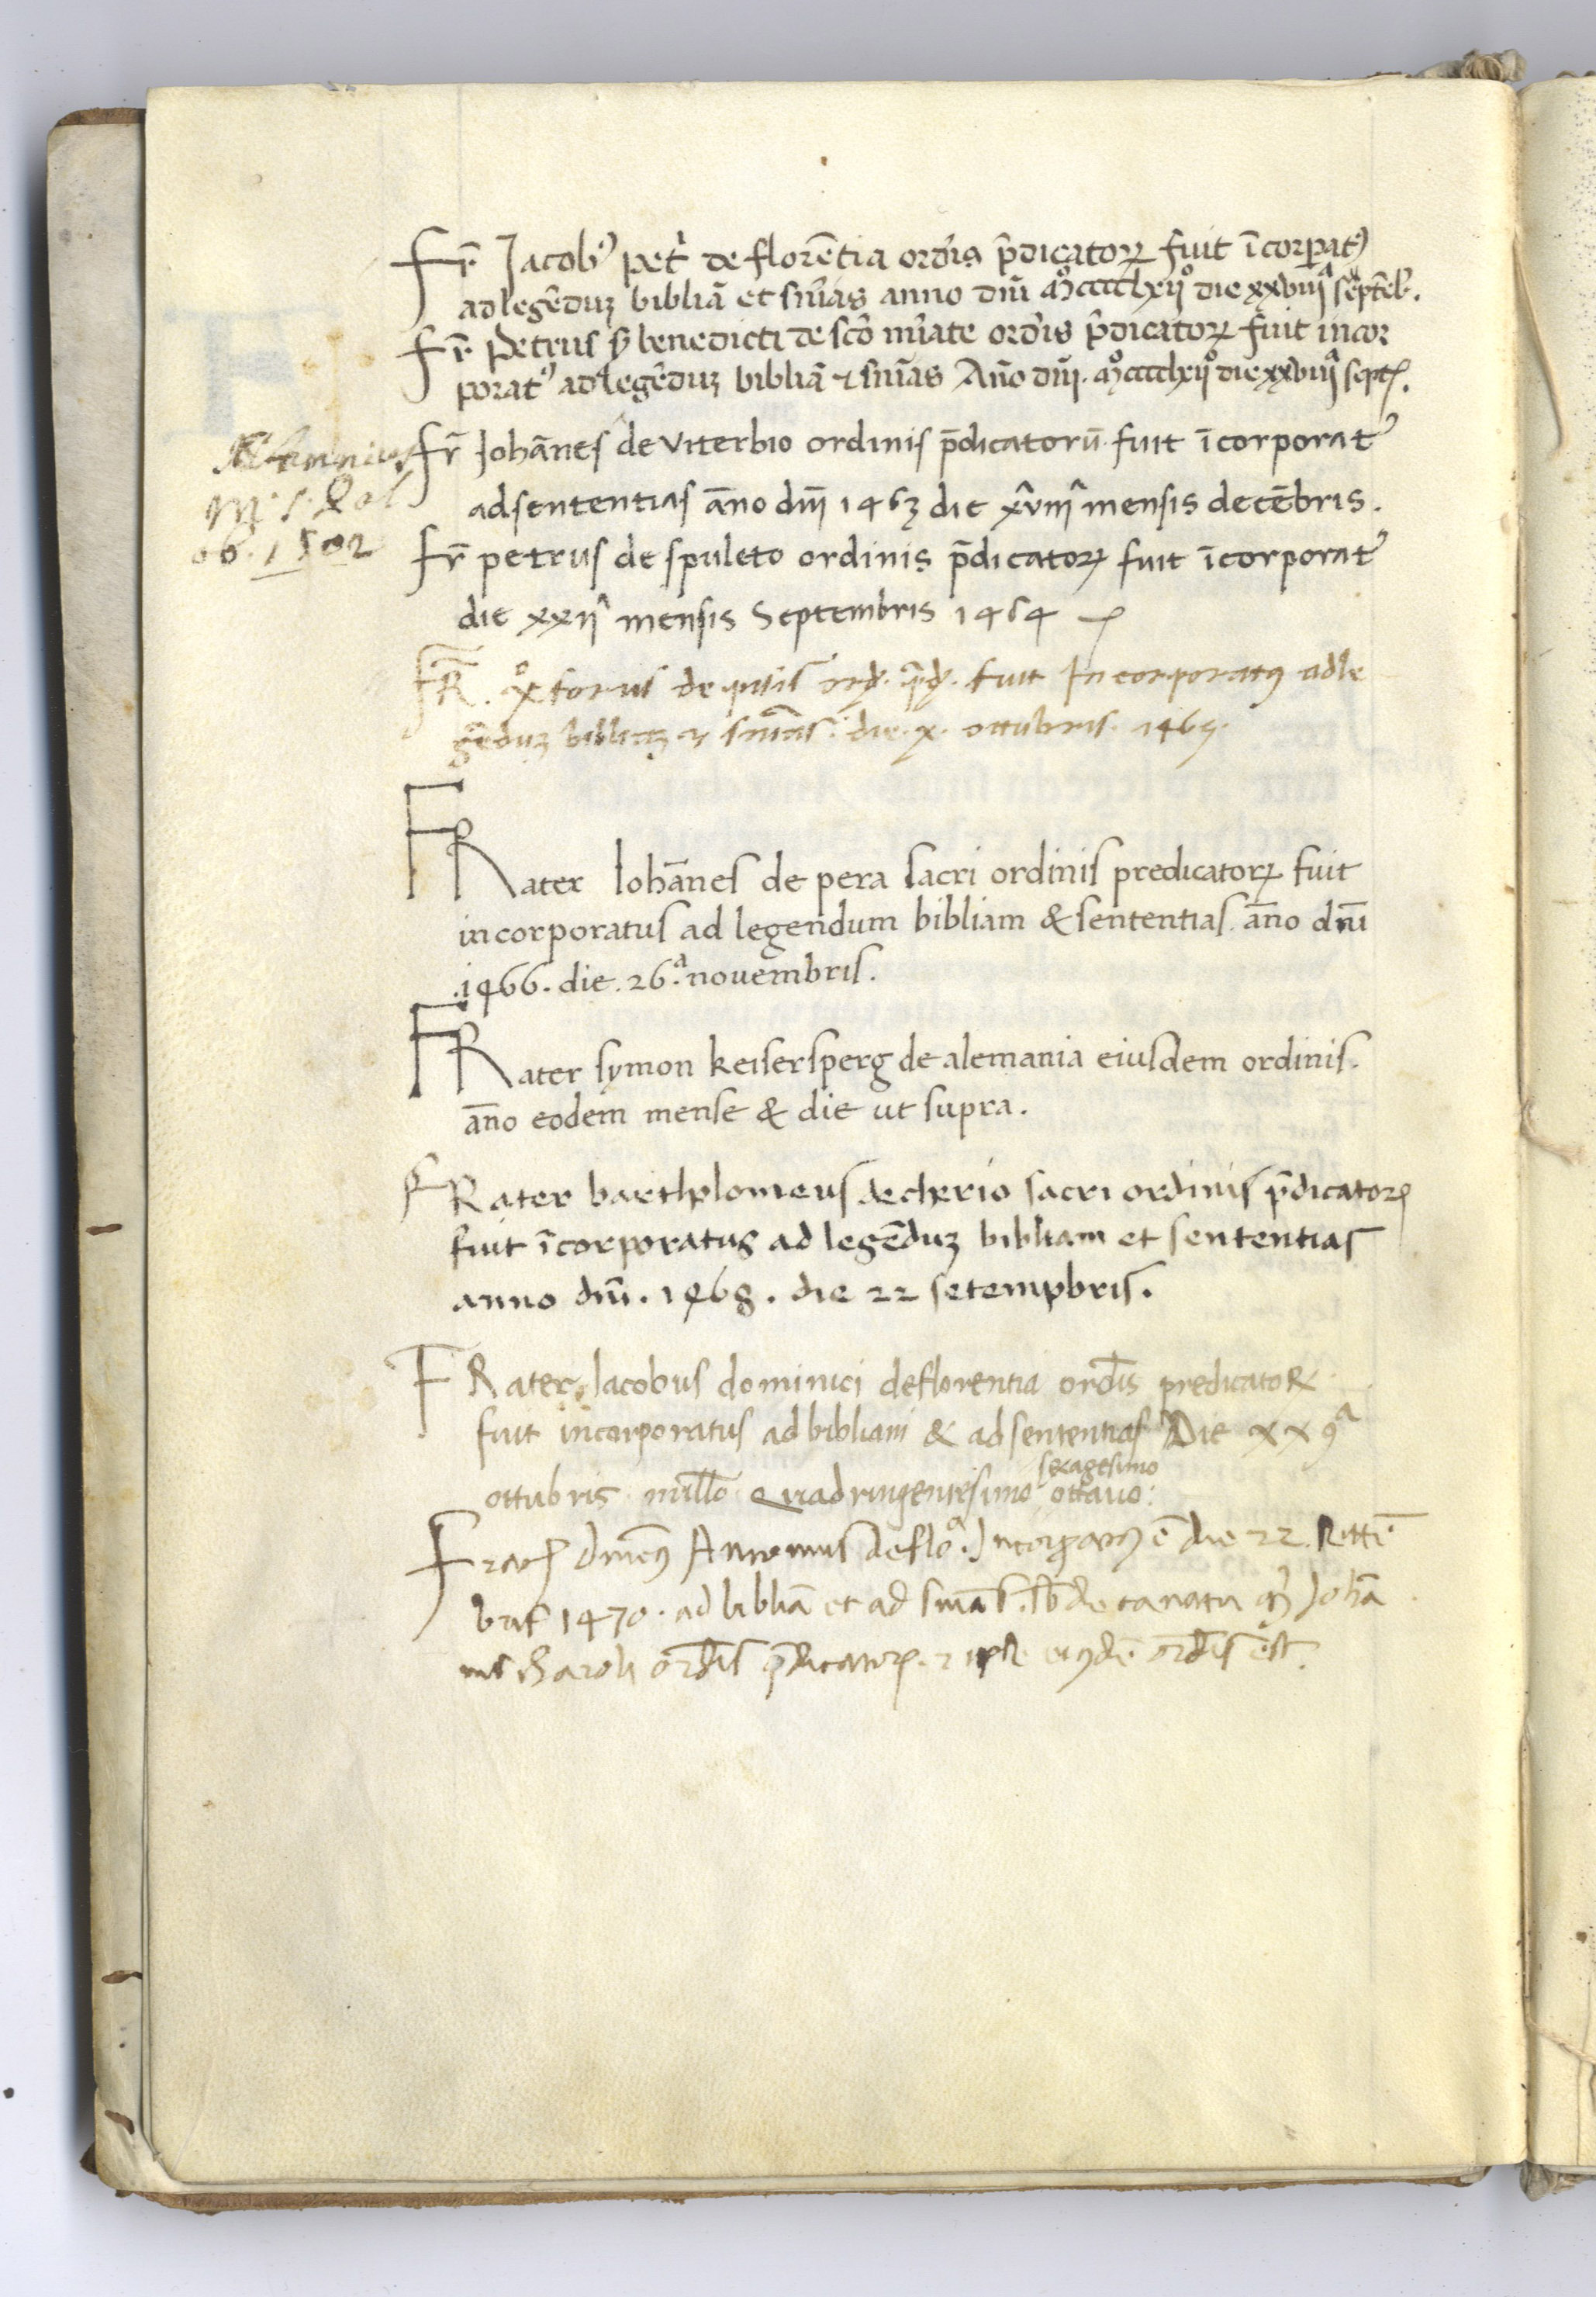 Fr̄ Jacobꝰ petͥ de florētia ordĩs p̄dicatoꝝ fuit ĩcorꝑatꝰ
ad legēduꝫ bibliā et snĩas anno dnĩ Mͦccccͦlxijͦ die xxviiijᵃ septēbͥ.
Fr̄ Petrus ẜ benedicti de scō mĩate ordĩs p̄dicatoꝝ fuit incor
poratꝰ ad legēduꝫ bibliā ⁊ snĩas Año dnĩ. Mͦccccͦlxijͦ die xxviiijᵃ septꝭ.
Fr̄ Johānes de viterbio ordinis p̄dicatorū fuit ĩcorporatꝰ
ad sententias āno dnĩ 1463 die xviijᵃ mensis decēbris.
Annius
Mͬ S. Pal
ob. 1502
Fr̄ petrus de spuleto ordinis p̄dicatoꝝ fuit ĩcorporatꝰ
die xxijᵃ mensis Septembris 1464
FR̄. xͦforus de ordͥ. p̄dͥ. fuit Incorporatꝰ ad le
gēduꝫ bibliaꝫ ⁊ snĩas: die. x. ottubris. 1465.
FRater Iohānes de pera sacri ordinis predicatoꝝ fuit
incorporatus ad legendum bibliam & sententias. āno dnĩ
.1466. die. 26.ᵃ nouembris.
FRater symon keisersperg de alemania eiusdem ordinis.
āno eodem mense & die ut supra.
FRater barthplomeus de cherio sacri ordinis p̄dicatoꝝ
fuit ĩcorporatus ad legēduꝫ bibliam et sententias
anno dnĩ. 1468. die 22 setempbris.
FRater Iacobus dominici de florentia ordīs predicatoꝝ
fuit incorporatus ad bibliam & ad sententias Die xx9ᵃ
ottubris millō Quadringentesimo sexagesimo ottauo:
Fratꝭ Antonius de floᵃ. Incorꝑatꝰ ē die 22. settē
bris 1470. ad bibliā et ad snīas. sb̄ decanatu mͬi Johā
nis Caroli ordīs p̄dicatoꝝ. ⁊ ipse eiꝰdē ordīs est.